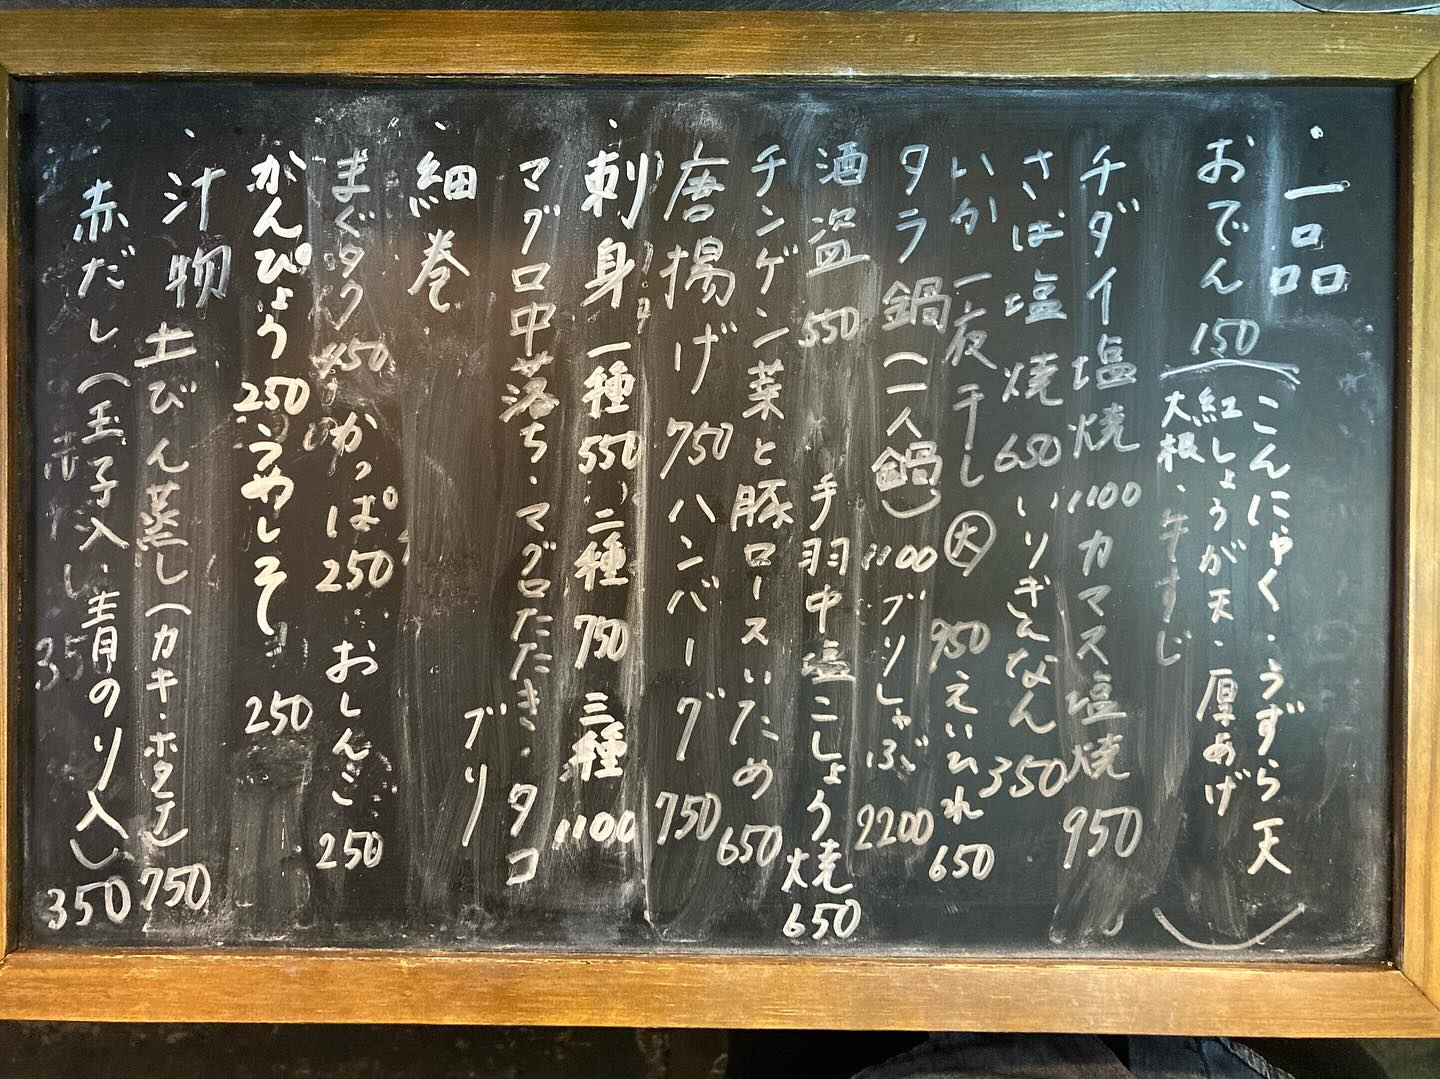 ・一品
おでん 150
(こんにゃく・うずら天
紅しょうが天・厚あげ
大根・牛すじ)
チダイ塩焼 1100 カマス塩焼 950
さば塩焼 650 いりぎんなん 350
いか一夜干し 大 950 えいひれ 650
タラ鍋(一人鍋) 1100 ブリしゃぶ 2200
酒盗 550 手羽中塩こしょう焼 650
チンゲン菜と豚ロースいため 650
唐揚げ 750 ハンバーグ 750
・刺身 一種 550 二種 750 三種 1100
マグロ中落ち・マグロたたき・タコ
ブリ
・細巻
まぐタク 450 かっぱ 250 おしんこ 250
かんぴょう 250 うめしそ 250
・汁物 土びん蒸し(カキ・ホタテ) 750
赤だし(玉子入・青のり入) 350